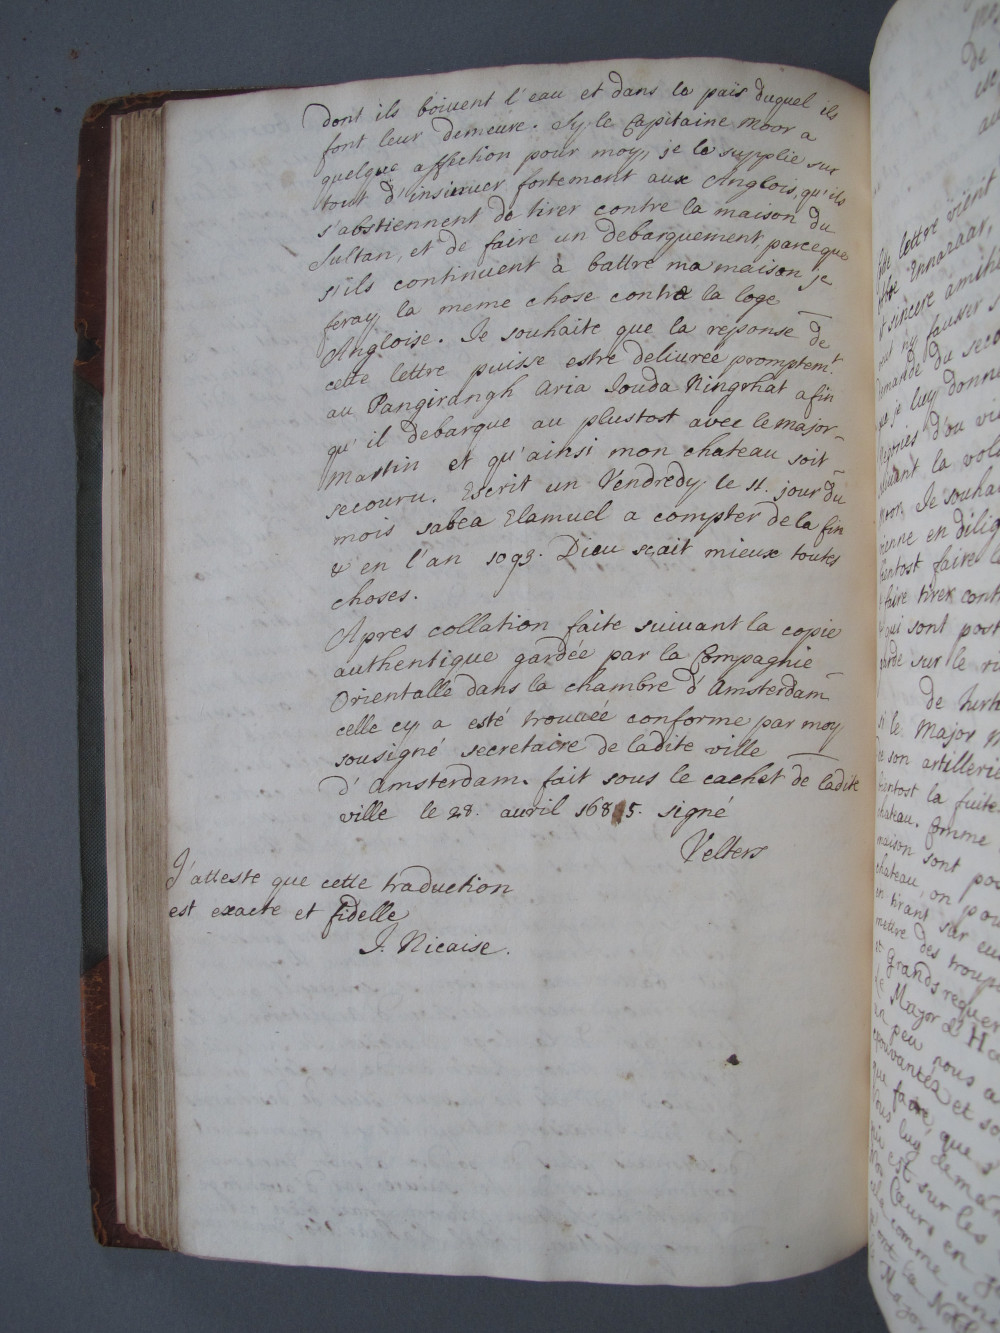 dont ils boivent l'eau et dans le païs duquel ils
font leur demeure. Sy le Capitaine Moor a
quelque affection pour moy, je le supplie sur
tout d'insinuer fortement aux Anglois, qu'ils
s'abstiennent de tirer contre la maison du
Sultan, et de faire un debarquement, parceque
s'ils continuent à battre ma maison je
feray la meme chose contre la loge
Angloise. Je souhaite que la reponse de
cette lettre puisse estre deliurée promptemt.
au Pangirangh Aria Souda Ningrhat afin
qu'il debarque au plustost avec le major
Martin et qu'ainsi mon chateau soit
secouru. Escrit un Vendredy le 11. jour du
mois sabea Elamuel a compter de la fin
& en l'an 1093. Dieu sçait mieux toutes
choses.
Apres collation faite suivant la copie
authentique gardée par la Compagnie
Orientalle dans la chambre d'Amsterdam
celle cy a esté trouuéé conforme par moy
sousigné secretaire de ladite ville
d'Amsterdam. fait sous le cachet de ladite
ville le 28. auril 1685. signé
Velters
J'atteste que cette traduction
est exacte et fidelle
J. Nicaise.
lettre vient
Ennazaar,
et sincere
fausser
demande du
je luy donne
d'ou
suivant la
Je souhai
vienne en dilig
bientost faire
faire tirer cont
qui sont post
garde sur le
de
si le Major M
de son artillerie
bientost la fuite
chateau. Comme
maison sont
chateau, on
en tirant sur eux
mettre des troupe
et grands
le Major
un peu nous a
epouvantéz et
que faire, que
Vous luy
est sur les
en
comme une
ont la
Major